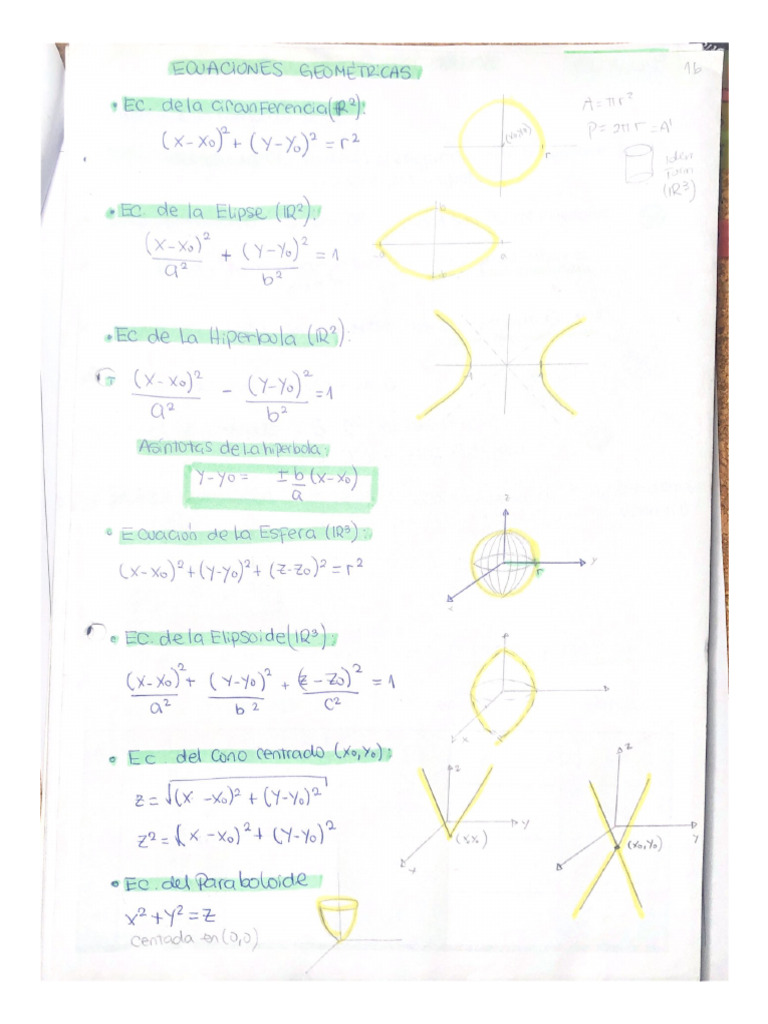 ECUACIONES GEOMÉTRICAS
16
• EC. de la circunferencia (R²):
(x-x₀)² + (y-y₀)² = r²
(x₀,y₀)
r
A = πr²
P = 2πr = A'
(R³)
• EC. de la Elipse (R²).
(x-x₀)²/a² + (y-y₀)²/b² = 1
b
-a
a
-b
• EC de La Hiperbola (R²):
(x-x₀)²/a² - (y-y₀)²/b² = 1
-1
1
Asíntotas de la hiperbola:
y-y₀ = ± b/a (x-x₀)
• Ecuación de la Esfera (R³):
(x-x₀)² + (y-y₀)² + (z-z₀)² = r²
z
y
r
x
• EC. de la Elipsoide (R³):
(x-x₀)²/a² + (y-y₀)²/b² + (z-z₀)²/c² = 1
x
• Ec. del Cono centrado (x₀,y₀):
z = √(x-x₀)² + (y-y₀)²
z² = (x-x₀)² + (y-y₀)²
z
y
x
z
y
(x₀,y₀)
• EC. del Paraboloide
x² + y² = z
centada en (0,0)